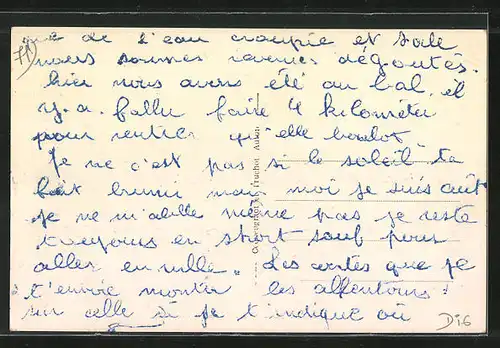 que de l'eau croupie et sale
nous sommes revenus dégoutés.
hier nous avons été au bal, et
y. a. fallu faire 4 kilométer
pour rentrer qu'elle boulot
Je ne c'est pas si le soleil ta
fait brunir mais moi je suis cuit
je ne m'abille même pas je reste
toujours en short sauf pour
aller en ville. Les cartes que je
t'envoie montre les allentours
sur celle si je t'indique où
Fruchot Autun
D16